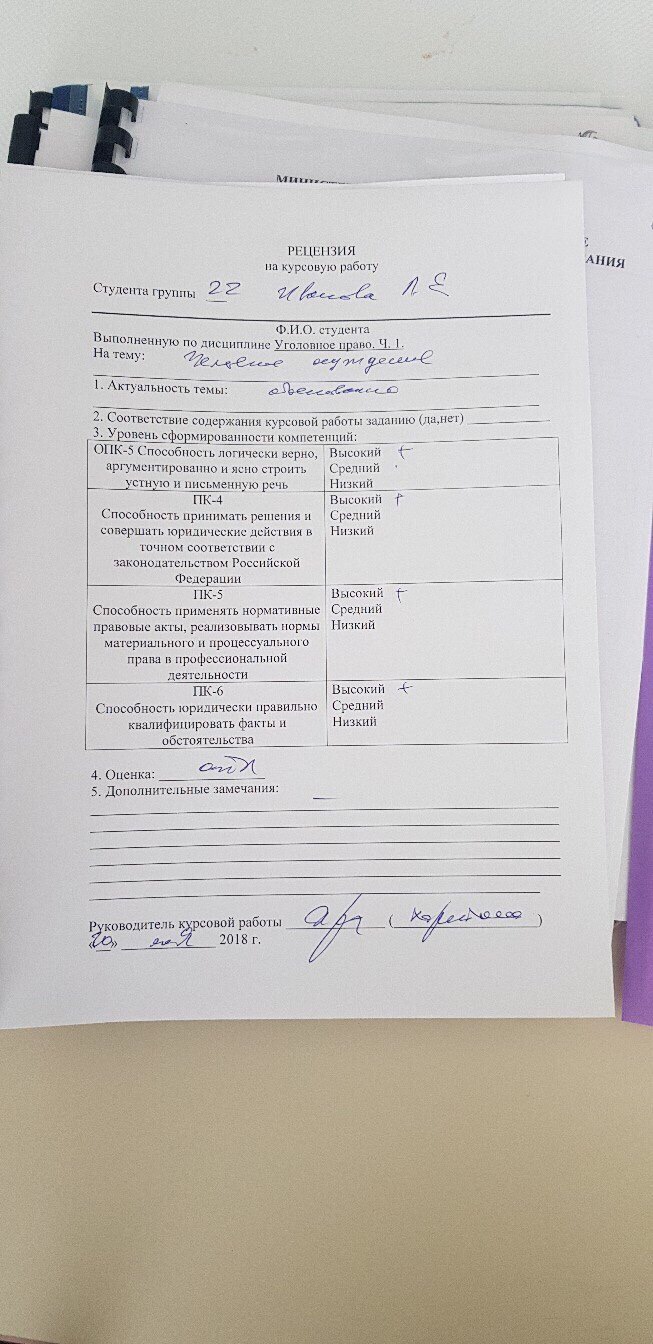 МИНИСТ
Е
АНИЯ
РЕЦЕНЗИЯ
на курсовую работу
Студента группы 22 Иванова Л Е
Ф.И.О. студента
Выполненную по дисциплине Уголовное право. Ч. 1.
На тему: Условное осуждение
1. Актуальность темы: обоснованно
2. Соответствие содержания курсовой работы заданию (да,нет)
3. Уровень сформированности компетенций:
ОПК-5 Способность логически верно,
аргументированно и ясно строить
устную и письменную речь
Высокий +
Средний
Низкий
ПК-4
Способность принимать решения и
совершать юридические действия в
точном соответствии с
законодательством Российской
Федерации
Высокий +
Средний
Низкий
ПК-5
Способность применять нормативные
правовые акты, реализовывать нормы
материального и процессуального
права в профессиональной
деятельности
Высокий +
Средний
Низкий
ПК-6
Способность юридически правильно
квалифицировать факты и
обстоятельства
Высокий +
Средний
Низкий
4. Оценка: отл
5. Дополнительные замечания: —
Руководитель курсовой работы ( )
«20» 2018 г.